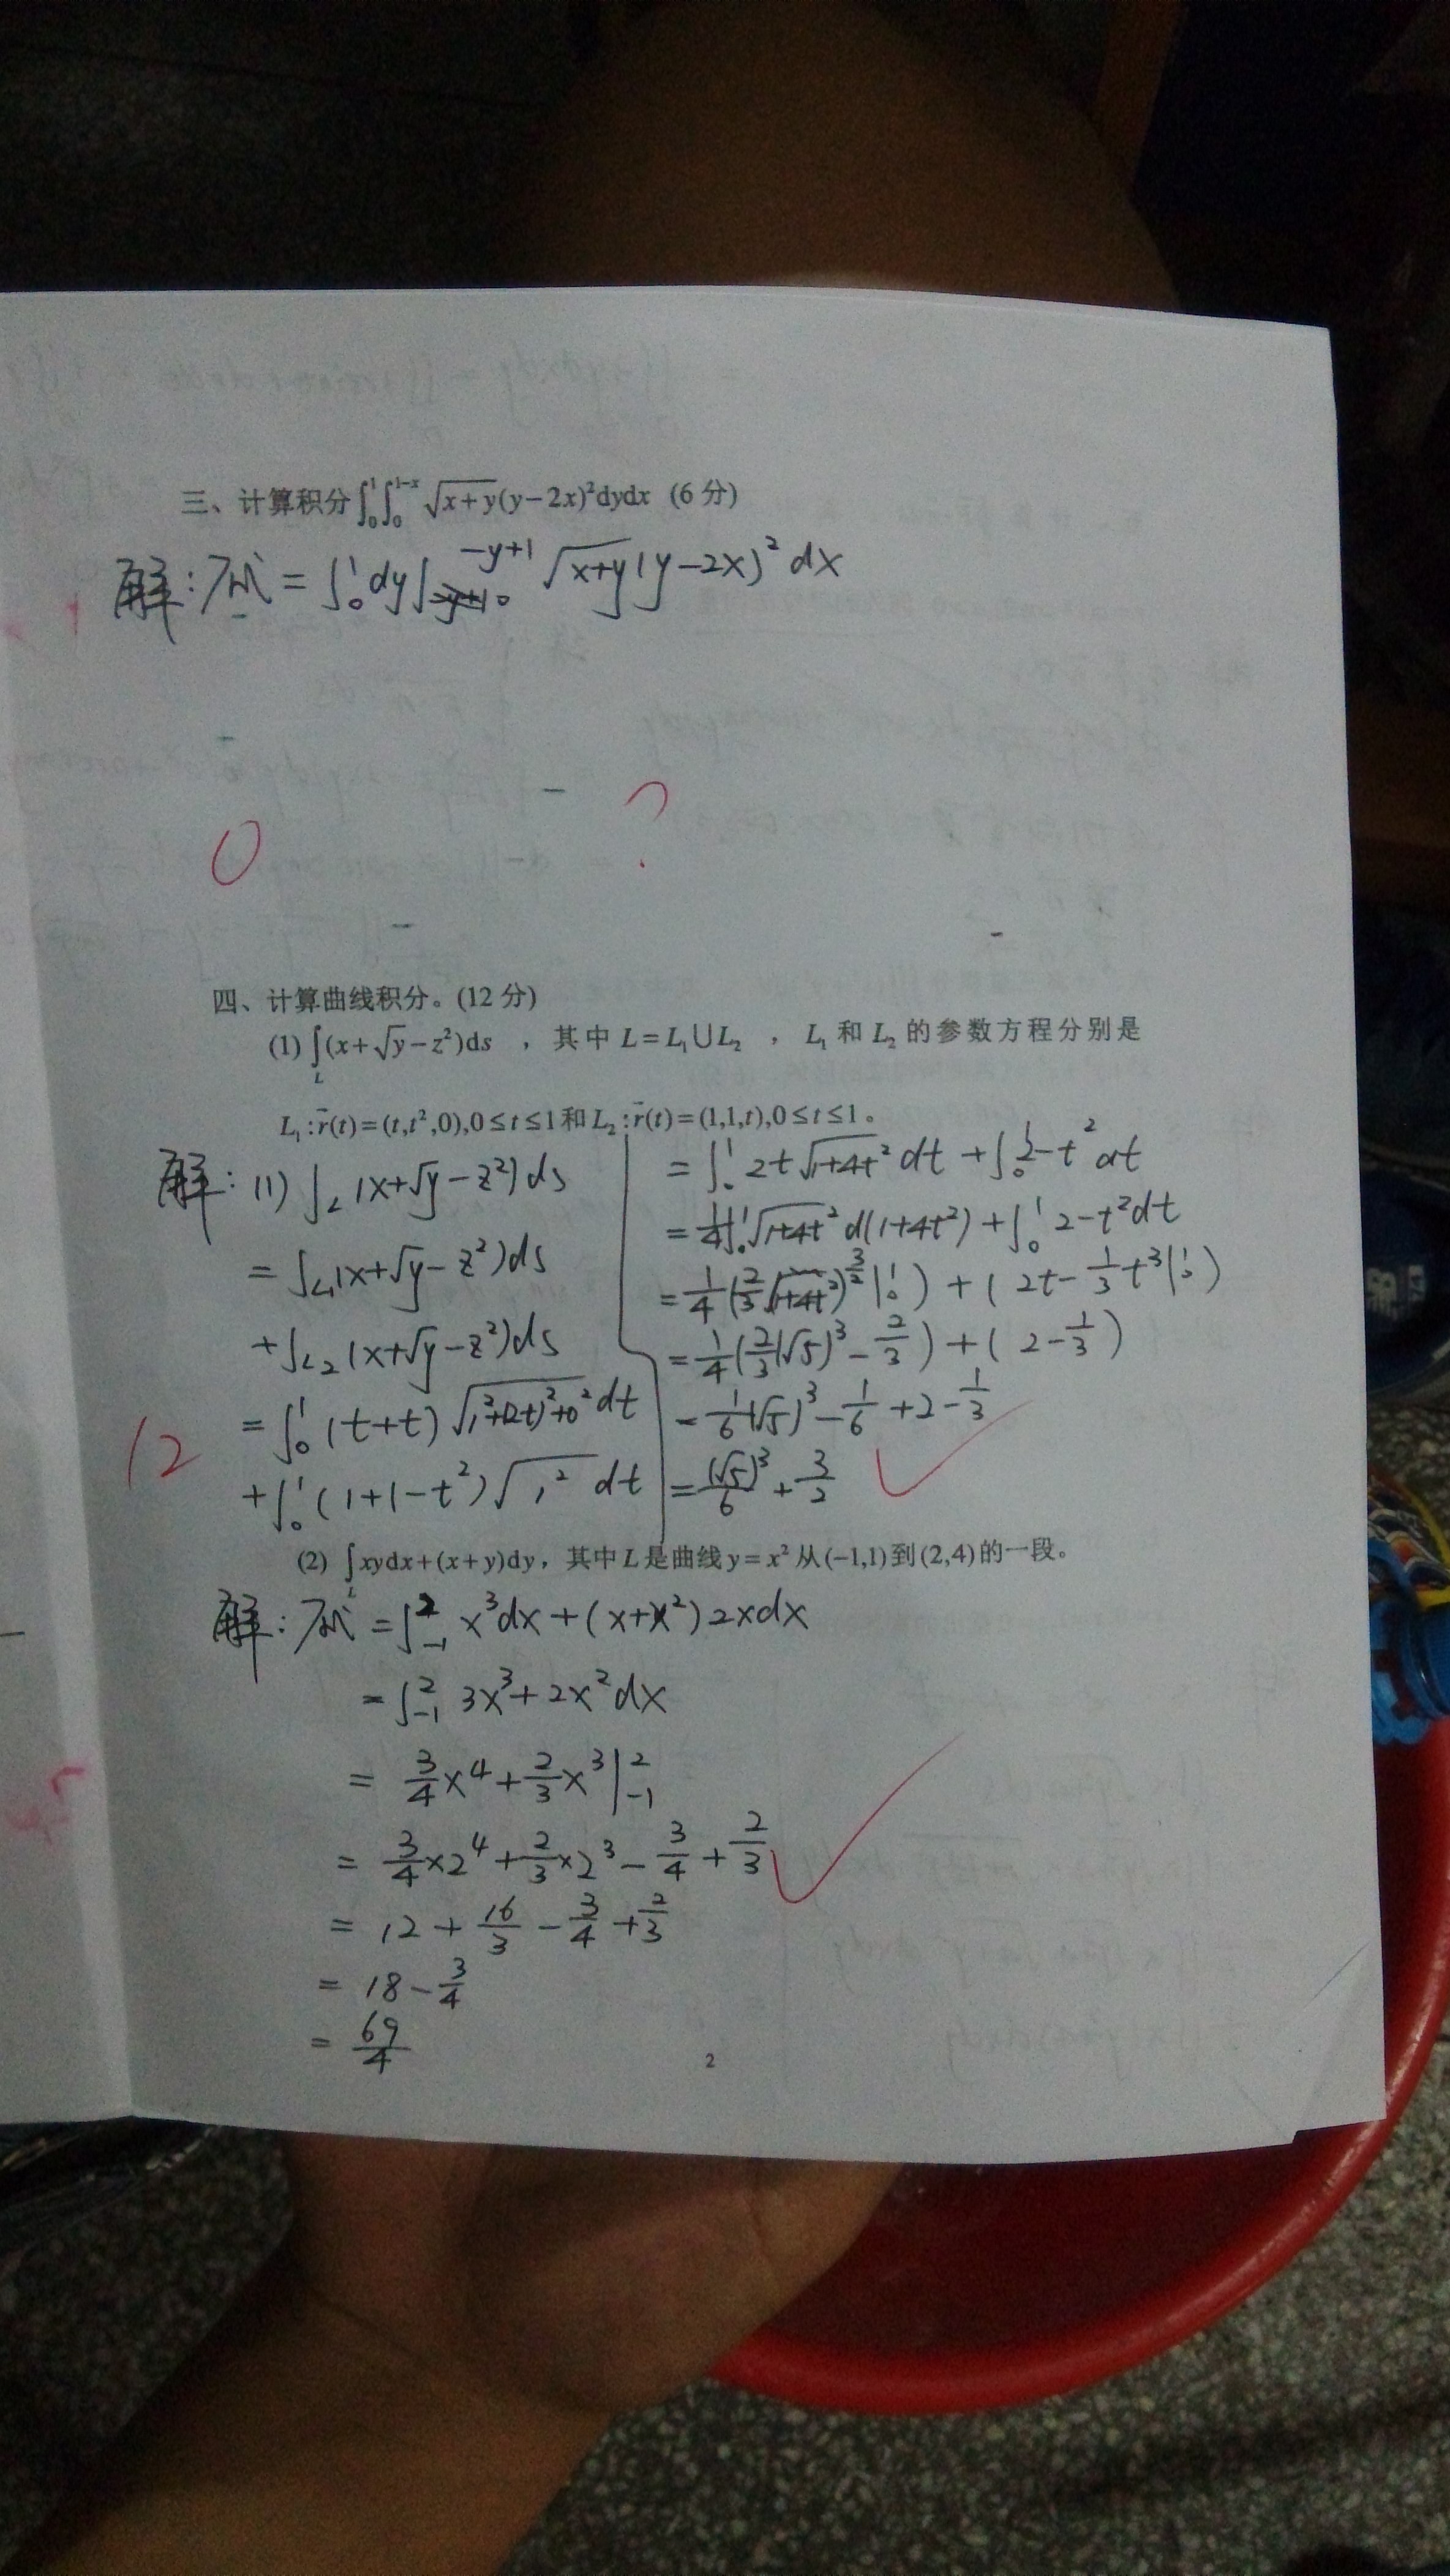 三、计算积分∫₀¹∫₀¹⁻ˣ √(x+y)(y−2x)²dydx (6 分)
解: 原式 = ∫₀¹ dy ∫₀^(−y+1) √(x+y) (y−2x)² dx
0
?
四、计算曲线积分。(12 分)
(1) ∫_L (x+√y−z²)ds ，其中 L=L₁∪L₂ ，L₁ 和 L₂ 的参数方程分别是
L₁:r⃗(t)=(t,t²,0),0≤t≤1和L₂:r⃗(t)=(1,1,t),0≤t≤1。
解: (1) ∫_L (x+√y−z²) ds
= ∫_L₁ (x+√y−z²) ds
+ ∫_L₂ (x+√y−z²) ds
= ∫₀¹ (t+t) √(1²+(2t)²+0²) dt
+ ∫₀¹ (1+1−t²) √(1²) dt
= ∫₀¹ 2t √(1+4t²) dt + ∫₀¹ 2−t² dt
= 1/4 ∫₀¹ √(1+4t²) d(1+4t²) + ∫₀¹ 2−t² dt
= 1/4 (2/3 (1+4t²)^(3/2) |₀¹) + (2t − 1/3 t³ |₀¹)
= 1/4 (2/3 (√5)³ − 2/3) + (2 − 1/3)
= 1/6 (√5)³ − 1/6 + 2 − 1/3
= (√5)³/6 + 3/2
12
(2) ∫_L xydx+(x+y)dy，其中 L 是曲线 y=x² 从(−1,1)到(2,4)的一段。
解: 原式 = ∫₋₁² x³dx + (x+x²) 2xdx
= ∫₋₁² 3x³ + 2x² dx
= 3/4 x⁴ + 2/3 x³ |₋₁²
= 3/4 ×2⁴ + 2/3 ×2³ − 3/4 + 2/3
= 12 + 16/3 − 3/4 + 2/3
= 18 − 3/4
= 69/4
2